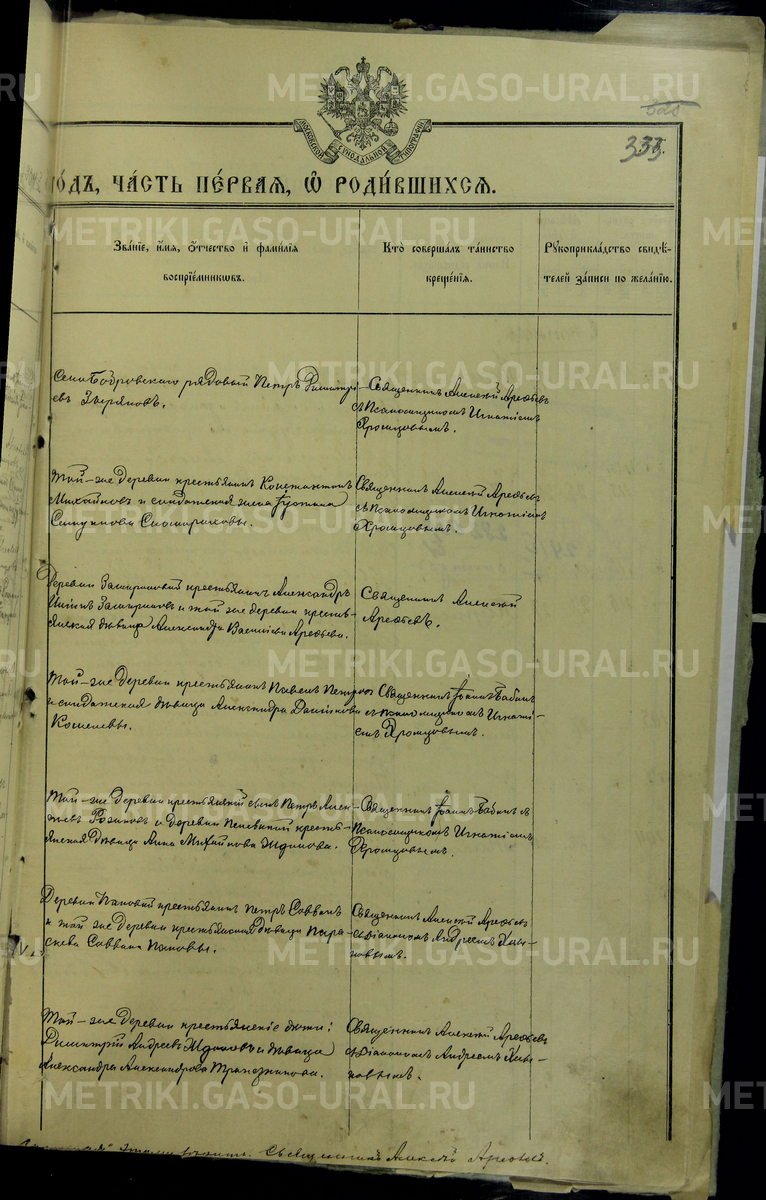 METRIKI.GASO-URAL.RU
МОСКОВСКОЙ СѴНОДАЛЬНОЙ ТИПОГРАФІИ
333.
ГО́ДЪ, ЧА́СТЬ ПЕ́РВАЯ, Ѡ РОДИ́ВШИХСЯ.
Зва́ніе, и́мя, ѻ́тчество и҆ фами́лія
воспріе́мниковъ.
Кто̀ соверша́лъ та́инство
креще́нія.
Рꙋкоприкла́дство свидѣ́-
телей за́писи по жела́нію.
Села Бобровскаго рядовый Петръ Димитрі-
евъ Зыряновъ.
Священникъ Алексій Арефьевъ
съ псаломщикомъ Игнатіемъ
Хромцовымъ.
Той-же деревни крестьянинъ Константинъ
Михайловъ и солдатская жена Іустина
Священникъ Алексій Арефьевъ
съ псаломщикомъ Игнатіемъ
Хромцовымъ.
Деревни крестьянинъ Александръ
и той же деревни кресть-
янская дѣвица Александра Василіева Арефьева.
Священникъ Алексій
Арефьевъ.
Той-же деревни крестьянинъ Павелъ Петровъ
и солдатская дѣвица Александра
Кошелевы.
Священникъ Іоаннъ Бабинъ
съ псаломщикомъ Игнаті-
емъ Хромцовымъ.
Той-же деревни крестьянскій сынъ Петръ Алек-
и деревни кресть-
янская дѣвица Анна Михайлова Жданова.
Священникъ Іоаннъ Бабинъ съ
псаломщикомъ Игнатіемъ
Хромцовымъ.
Деревни Пановой крестьянинъ Петръ Саввинъ
и той же деревни крестьянская дѣвица Пара-
скева Саввина Пановы.
Священникъ Алексій Арефьевъ
съ діакономъ Андреемъ
Той-же деревни крестьянскіе дѣти:
Димитрій Андреевъ Ждановъ и дѣвица
Александра Александрова Трапезникова.
Священникъ Алексій Арефьевъ
съ діакономъ Андреемъ
Священникъ Алексій Арефьевъ.